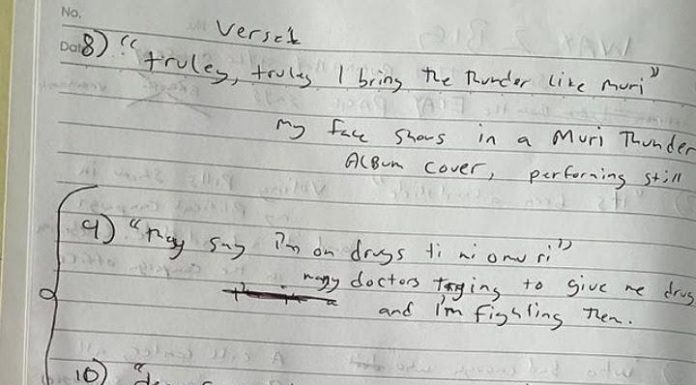 No.
Verse 1
Date
8) "truley, truley I bring the thunder like muri"
My face shows in a Muri Thunder
Album cover, performing still
9) "they say I'm on drugs ti ni omu ri"
many doctors trying to give me drug
and I'm fighting them.
10) "